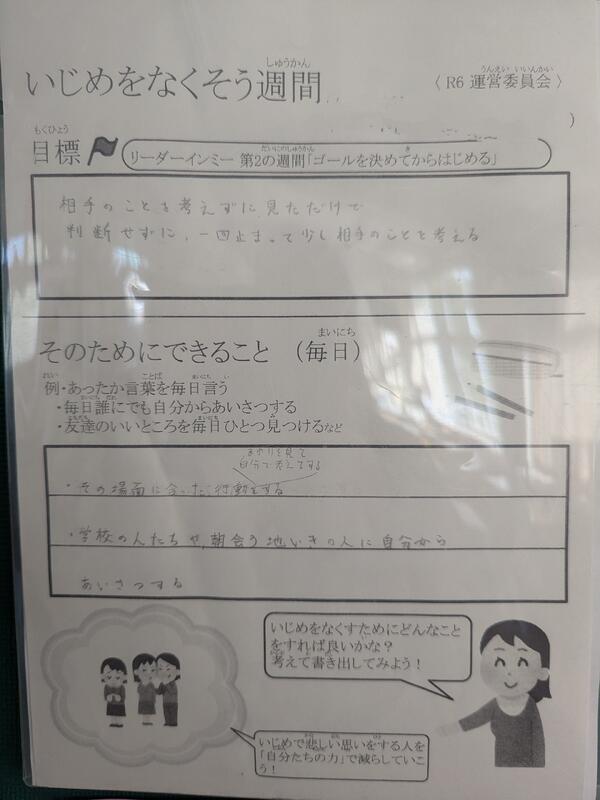 いじめをなくそう週間
しゅうかん
〈 R6 運営委員会 〉
うんえい いいんかい
目標
もくひょう
リーダーインミー 第2の週間「ゴールを決めてからはじめる」
だいにのしゅうかん
き
相手のことを考えずに見ただけで
判断せずに、一回止まって少し相手のことを考える
そのためにできること (毎日)
まいにち
例・あったか言葉を毎日言う
・毎日誰にでも自分からあいさつする
・友達のいいところを毎日ひとつ見つけるなど
まわりを見て
自分で考えてする
・その場面に合った行動をする
・学校の人たちや、朝会う地いきの人に自分から
あいさつする
いじめをなくすためにどんなこと
をすれば良いかな？
考えて書き出してみよう！
いじめで悲しい思いをする人を
「自分たちの力」で減らしていこ
う！